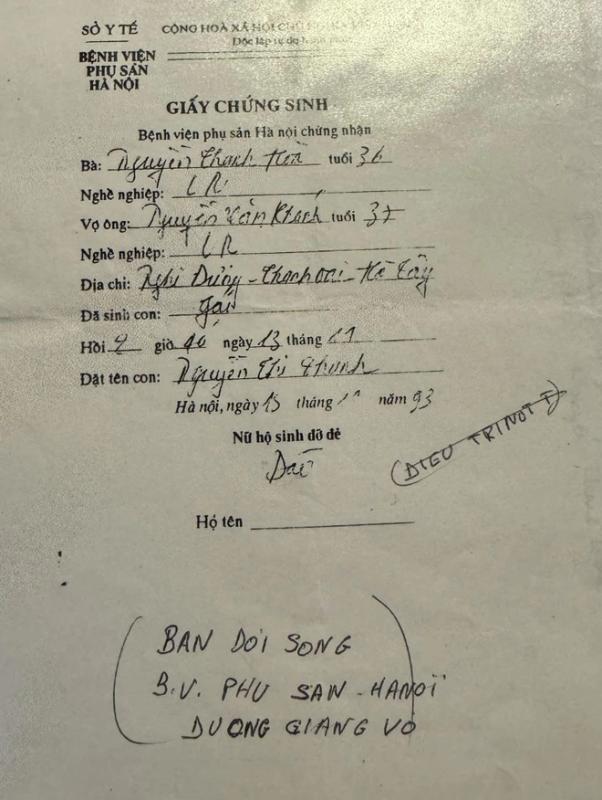 SỞ Y TẾ
CỘNG HOÀ XÃ HỘI CHỦ
Độc lập tự do
BỆNH VIỆN
PHỤ SẢN
HÀ NỘI
GIẤY CHỨNG SINH
Bệnh viện phụ sản Hà nội chứng nhận
Bà: Nguyễn Thanh Hoà tuổi 36
Nghề nghiệp: LR
Vợ ông: Nguyễn Văn Khanh tuổi 37
Nghề nghiệp: LR
Địa chỉ: Nghĩ Dưỡng - Thanh Oai - Hà Tây
Đã sinh con: gái
Hồi giờ 40 ngày 13 tháng 11
Đặt tên con: Nguyễn Thị Thanh
Hà nội, ngày 13 tháng 11 năm 93
Nữ hộ sinh đỡ đẻ
(DIEU TRINOT I)
Họ tên
(BAN DOI SONG
B.V. PHU SAN - HANOI
DUONG GIANG VO)